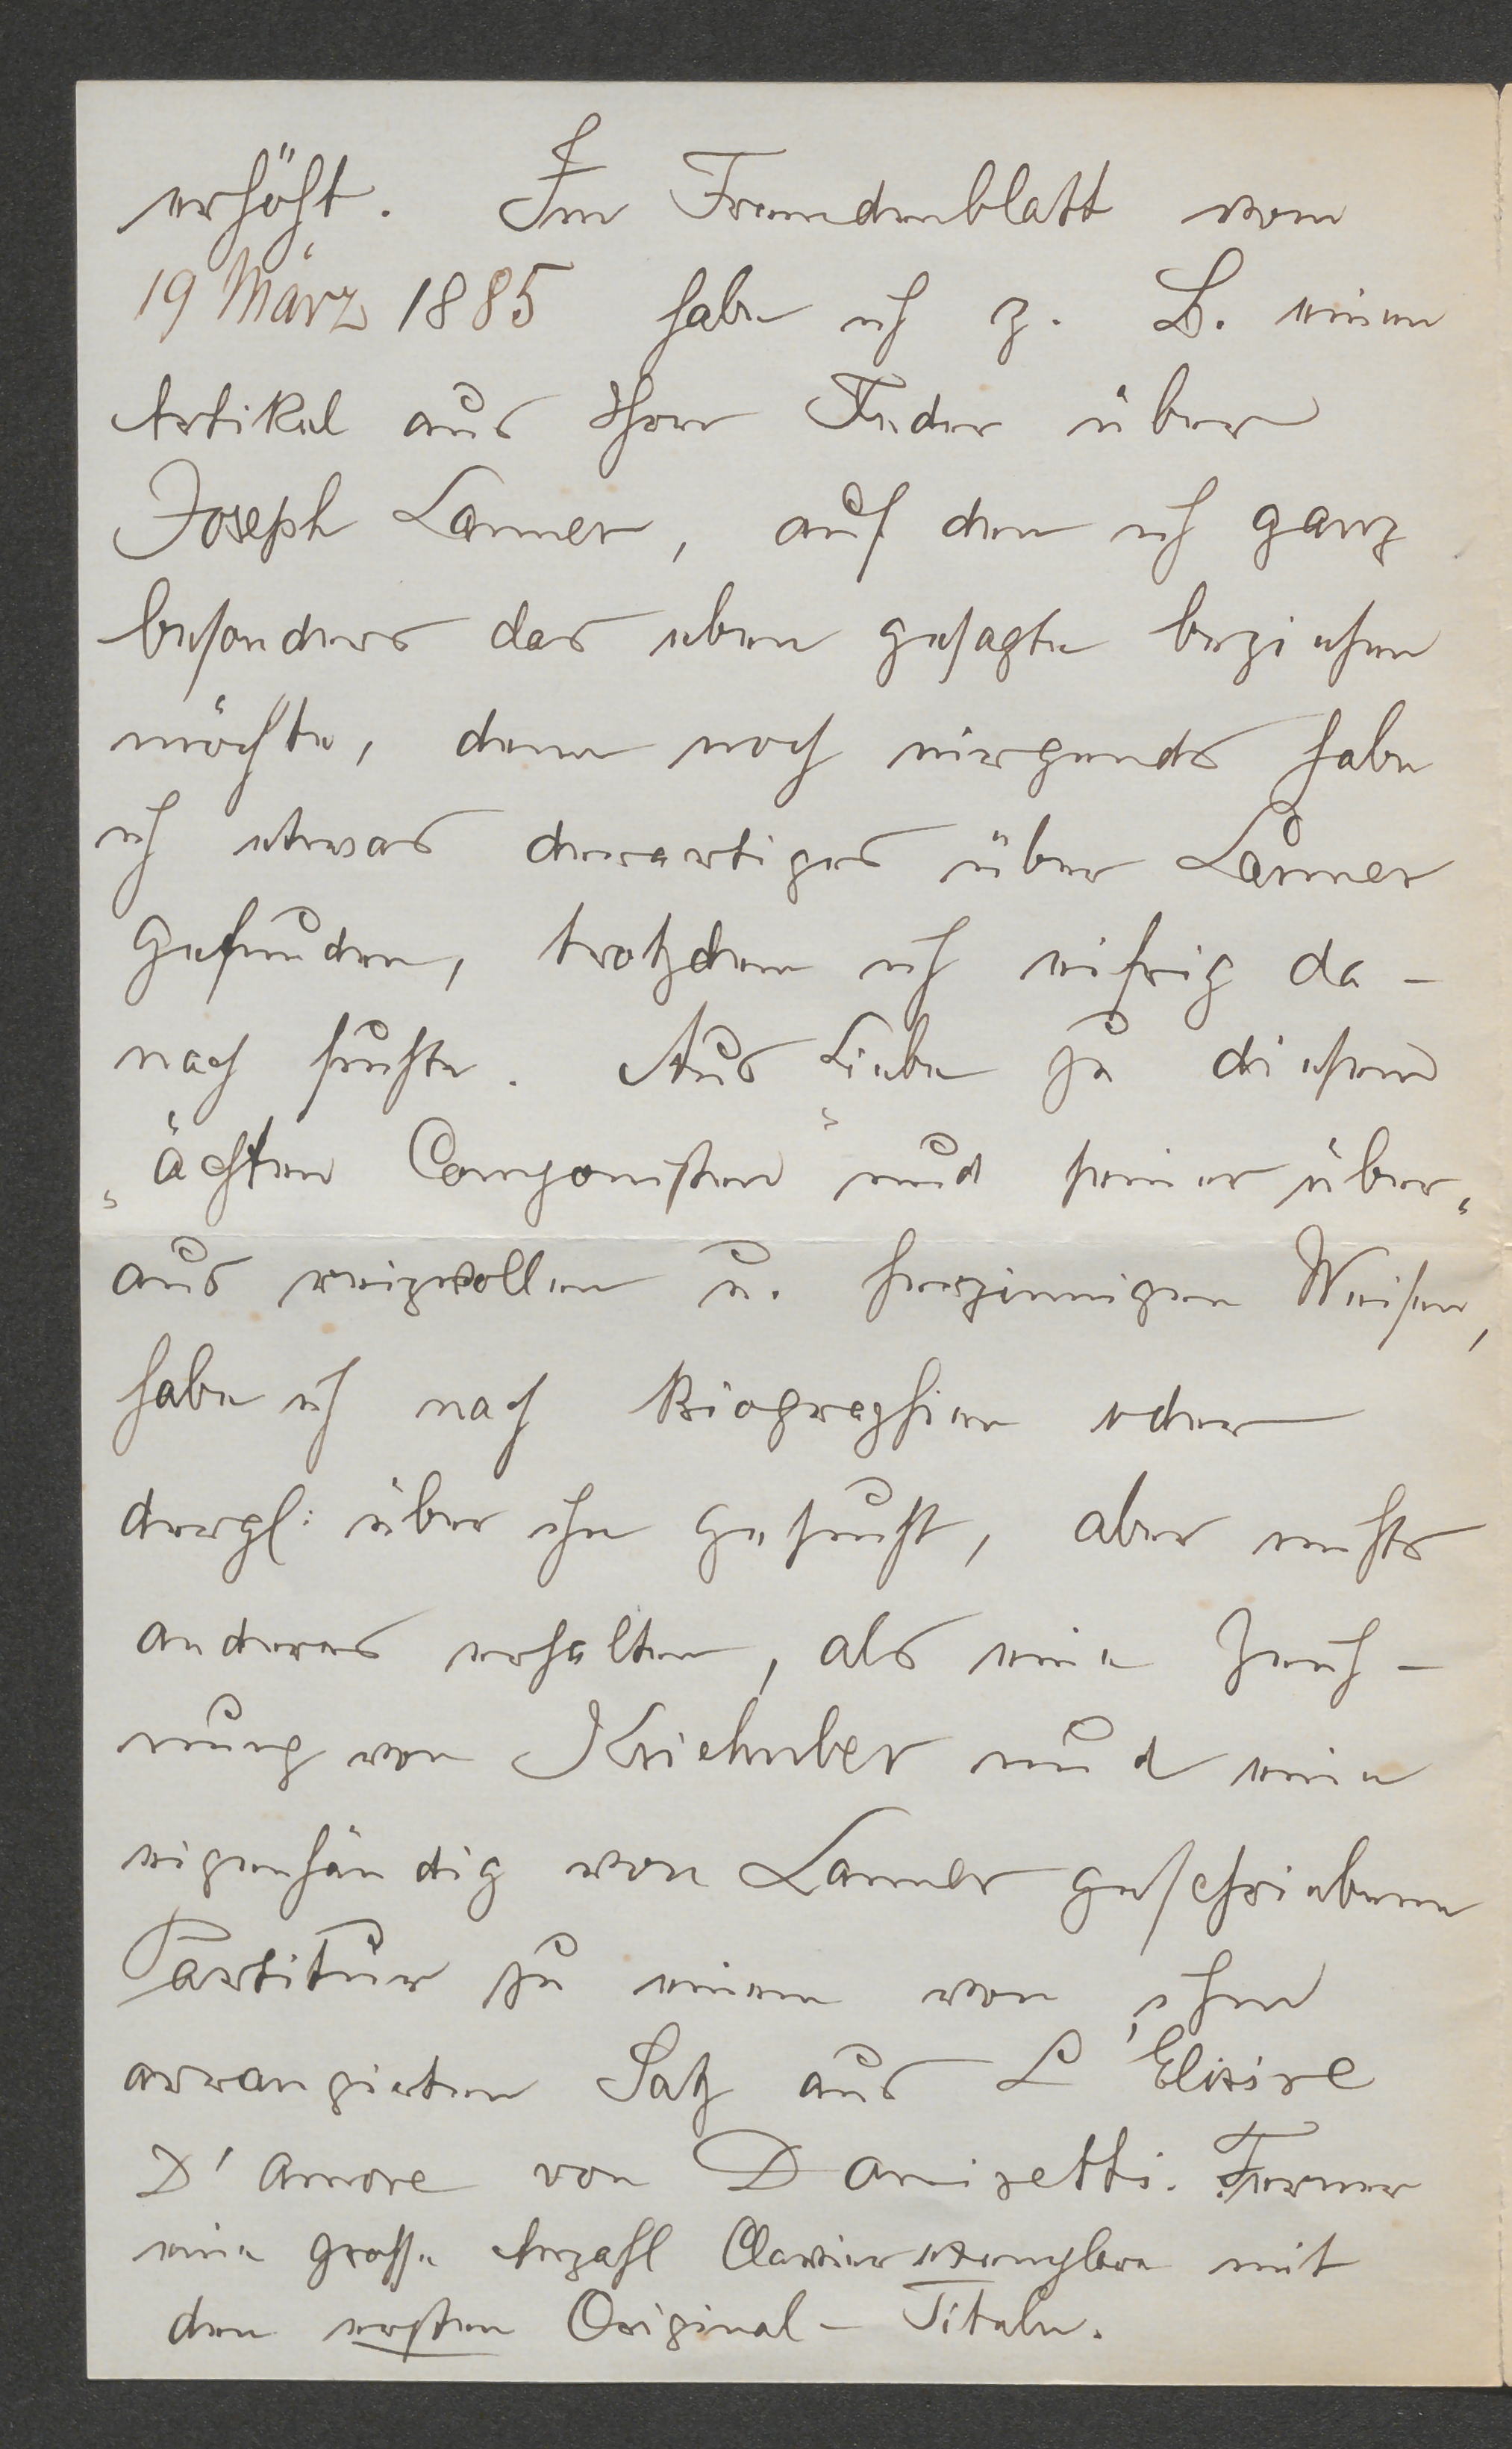 erhöht. Im Fremdenblatt vom
19 März 1885 habe ich z. B. einen
Artikel aus Ihrer Feder über
Joseph Lanner, auf den ich ganz
besonders das eben gesagte beziehen
möchte, denn noch nirgends habe
ich etwas derartiges über Lanner
gefunden, trotzdem ich eifrig da-
nach suchte. Aus Liebe zu diesem
„ächten Componisten“ und seiner über„
aus reizvollen u. herzinnigen Weisen,
habe ich nach Biographien oder
dergl: über ihn gesucht, aber nichts
anderes erhalten, als eine Zeich-
nung von Kriehuber und eine
eigenhändig von Lanner geschriebene
Partitur zu einem von ihm
arrangierten Satz aus L'Elisire
D'amore von Donizetti. Ferner
eine grosse Anzahl Clavierexemplare mit
den ersten Original-Titeln.